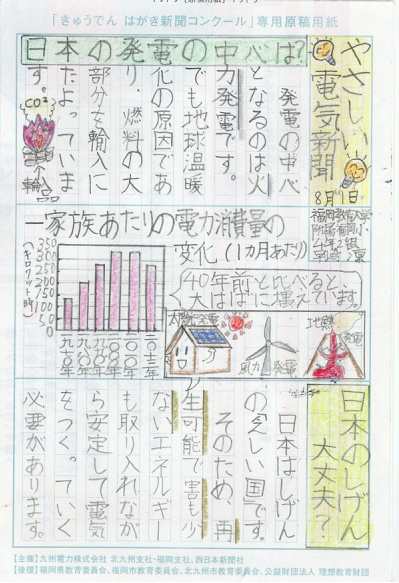 「きゅうでん はがき新聞コンクール」専用原稿用紙
やさしい
電気新聞
8月1日
日本の発電の中心は?
発電の中心
となるのは火
力発電です。
でも地球温暖
化の原因であ
り、燃料の大
部分を輸入に
たよっていま
す。
CO2
一家族あたりの電力消費量の
変化(1カ月あたり)
(キロワット時)
40年前と比べると、
大はばに増えています。
風力発電
地熱
発電
日本のしげん
大丈夫?
日本はしげん
の乏しい国です。
そのため、再
生可能で害も少
ないエネルギー
も取り入れなが
ら安定して電気
をつくっていく
必要があります。
【主催】九州電力株式会社 北九州支社・福岡支社、西日本新聞社
【後援】福岡県教育委員会、福岡市教育委員会、北九州市教育委員会、公益財団法人 理想教育財団